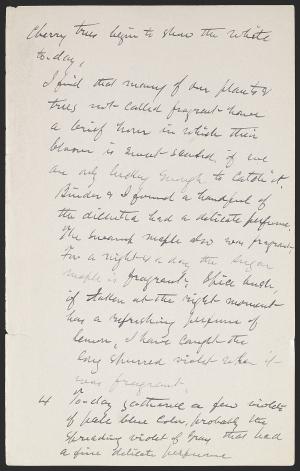 Cherry trees begin to show the white
to-day.
I find that many of our plants &
trees not called fragrant have
a brief hour in which their
bloom is sweet scented, if we
are only lucky enough to catch it.
I found a handful of
the dicentra had a delicate perfume.
The swamp maple also was fragrant.
For a night & a day the sugar
maple is fragrant. Spice bush,
if taken at the right moment
has a refreshing perfume of
lemon, I have caught the
long spurred violet when it
was fragrant.
4 To-day gathered a few violets
of pale blue color, probably the
spreading violet of Gray that had
a fine delicate perfume